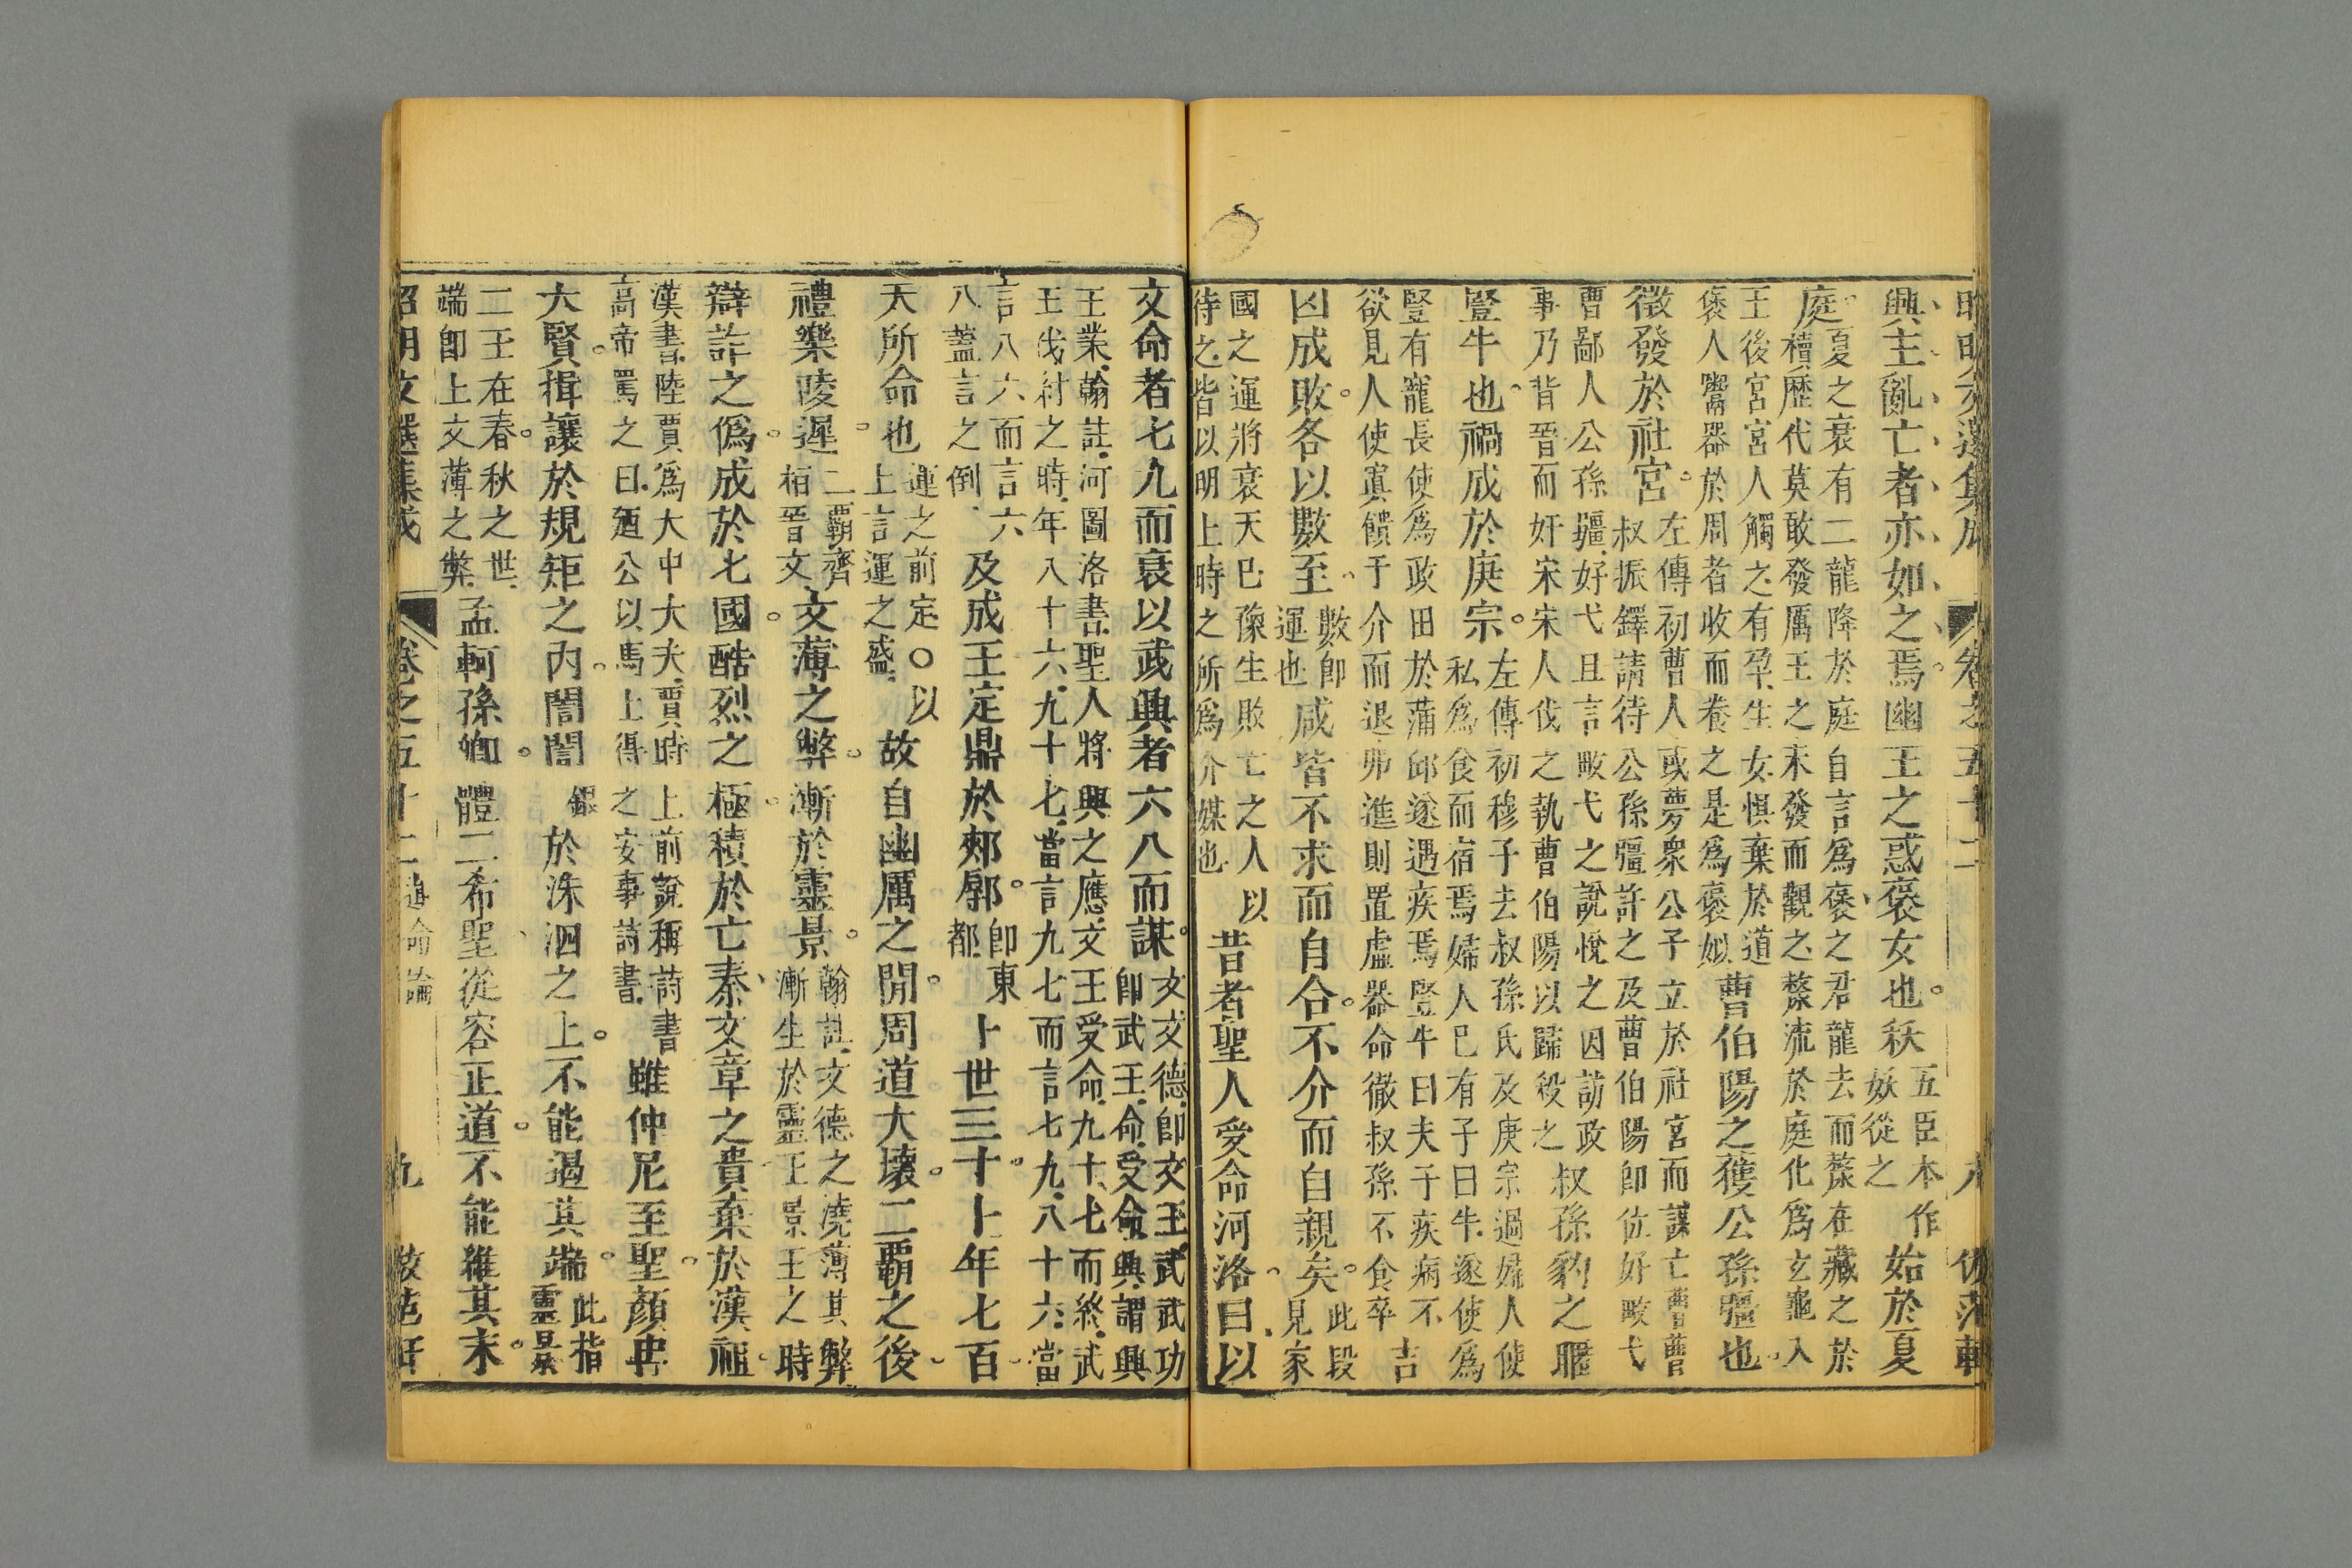 卷之五十二
興主亂亡者亦如之焉幽王之惑褒女也祅五臣本作妖從之始於夏
庭夏之衰有二龍降於庭自言爲褒之君龍去而漦在藏之於櫝歷代莫敢發厲王之末發而觀之漦流於庭化爲玄龜入
王後宮宮人觸之有孕生女懼棄於道褒人鬻器於周者收而養之是爲褒姒曹伯陽之獲公孫彊也
徵發於社宮左傳初曹人或夢衆公子立於社宮而謀亡曹曹叔振鐸請待公孫彊許之及曹伯陽即位好畋弋
曹鄙人公孫彊好弋且言畋弋之說悅之因訪政事乃背晉而奸宋宋人伐之執曹伯陽以歸殺之叔孫豹之暱
豎牛也禍成於庚宗左傳初穆子去叔孫氏及庚宗遇婦人使私爲食而宿焉婦人已有子曰牛遂使爲
豎有寵長使爲政田於蒲邱遂遇疾焉豎牛曰夫子疾病不欲見人使寘饋于介而退弗進則置虛器命徹叔孫不食卒吉
凶成敗各以數至數卽運也咸皆不求而自合不介而自親矣此段見家
國之運將衰天巳豫生敗亡之人以待之皆以明上時之所爲介媒也以昔者聖人受命河洛曰以
文命者七九而衰以武興者六八而謀文文德卽文王武武功卽武王命受命興謂興
王業翰註河圖洛書聖人將興之應文王受命九十七而終武王伐紂之時年八十六九十七當言九七而言七九八十六當
言八六而言六八蓋言之倒及成王定鼎於郟鄏卽東都卜世三十卜年七百
天所命也運之前定○以上言運之盛故自幽厲之閒周道大壞二霸之後
禮樂陵遲二霸齊桓晉文文薄之弊漸於靈景翰註文德之澆薄其弊漸生於靈王景王之時
辯詐之僞成於七國酷烈之極積於亡秦文章之貴棄於漢祖
漢書陸賈爲大中大夫賈時上前說稱詩書高帝罵之曰迺公以馬上得之安事詩書雖仲尼至聖顏冉
大賢揖讓於規矩之內誾誾銀於洙泗之上不能遏其端此指靈景
二王在春秋之世端卽上文薄之弊孟軻孫卿體二希聖從容正道不能維其末
昭明文選集成 卷之五十二 運命論 九